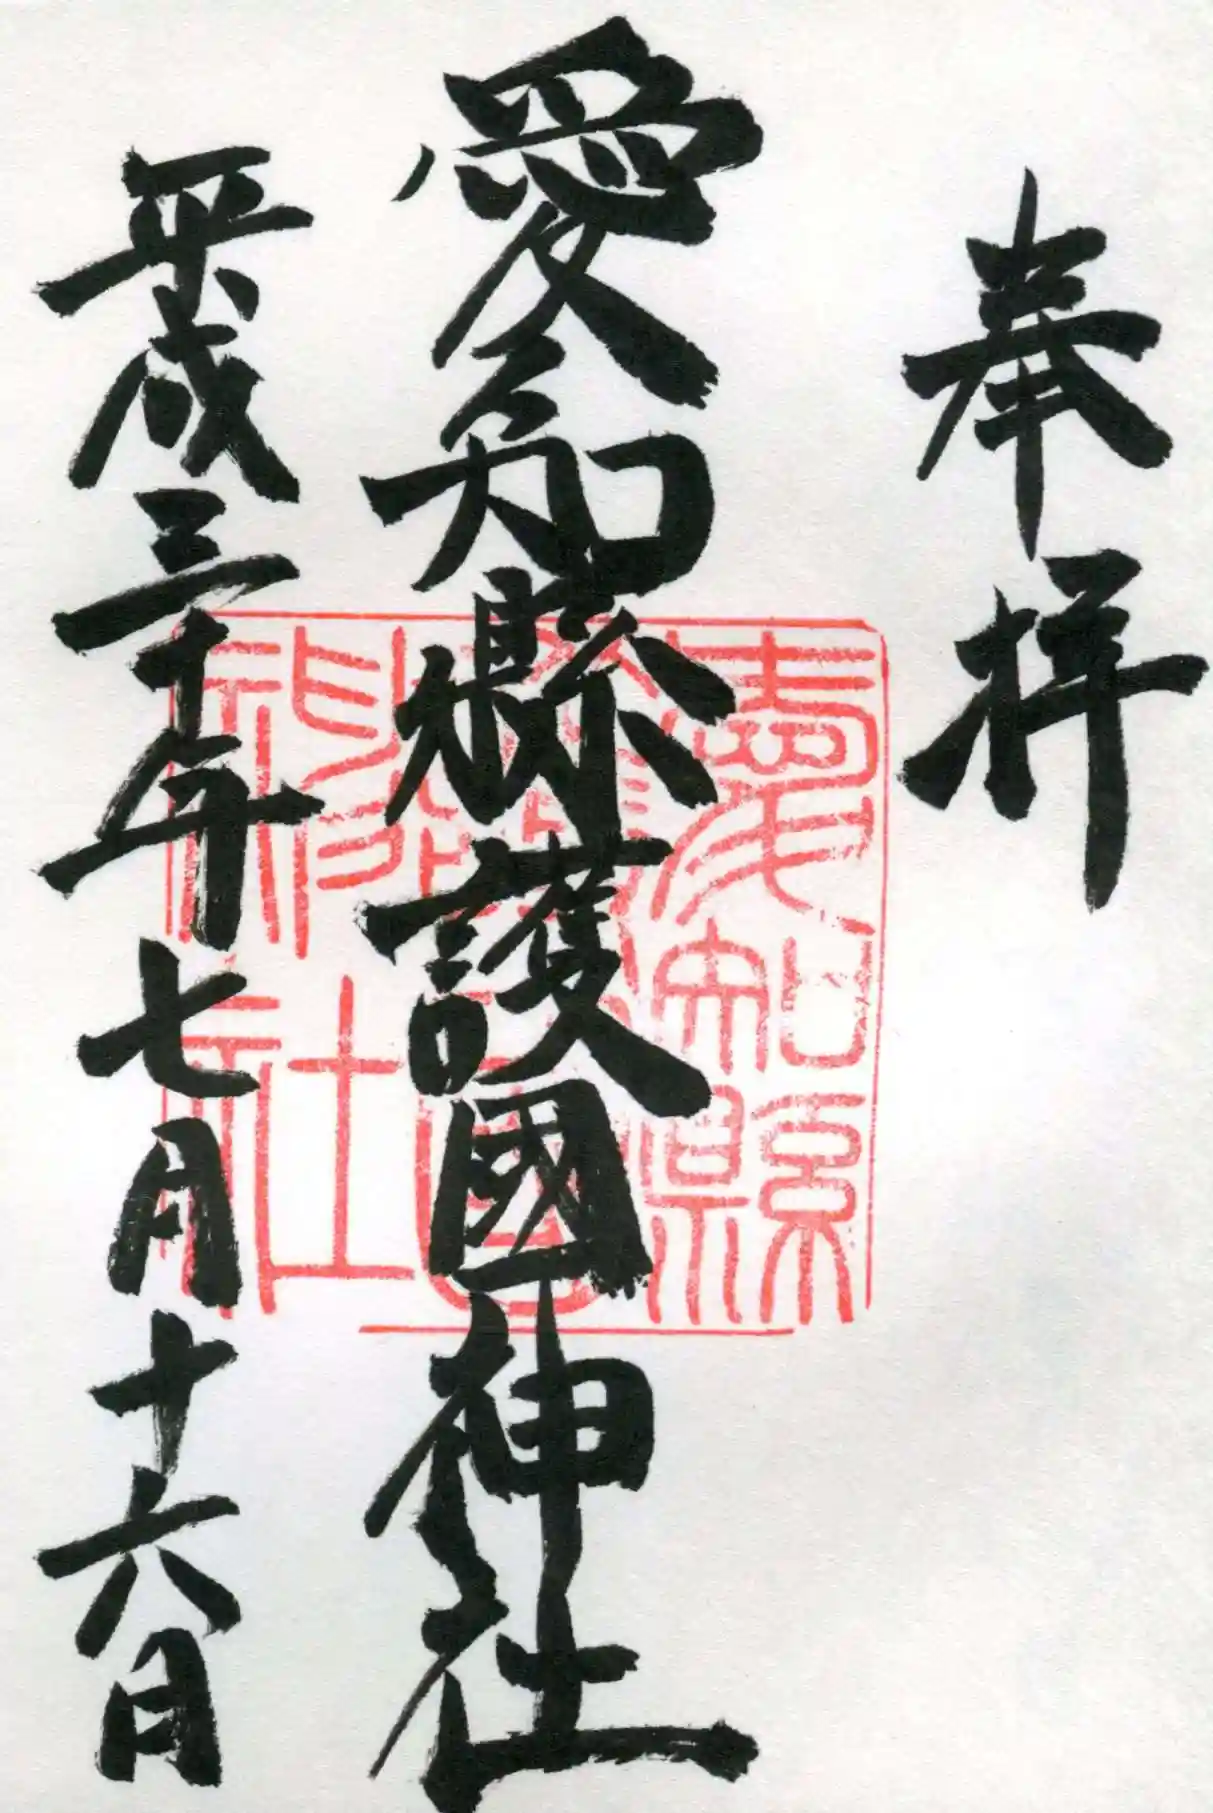 奉拝
愛知縣護國神社
愛知縣
護國
神社
平成三十年七月十六日